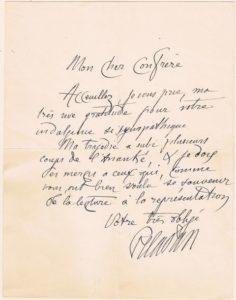 Mon Cher Confrère
Accueillez, je vous prie, ma
très vive gratitude pour votre
indulgence si sympathique
Ma tragédie a subi plusieurs
coups de l'Ananké, & je dois
des mercis à ceux qui, comme
vous, ont bien voulu se souvenir
de la lecture à la représentation
Votre très obligé
Peladan